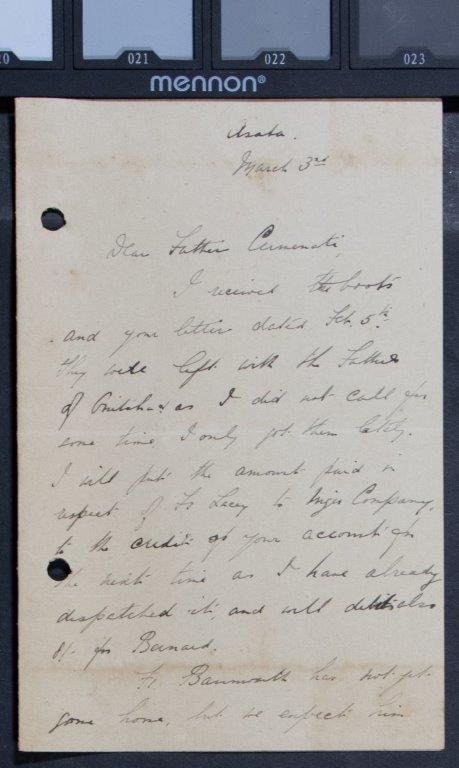 20
021
022
023
mennon®
Asaba.
March 3rd
Dear Father Cermenati,
I received the boots
and your letter dated Feb. 5th.
They were left with the Fathers
of Onitsha & as I did not call for
some time, I only got them lately.
I will put the amount paid in
respect of Fr Lacey to Niger Company,
to the credit of your account for
the next time as I have already
dispatched it, and will debit also
8/- for Bernard.
Fr has not yet
gone home, but we expect him